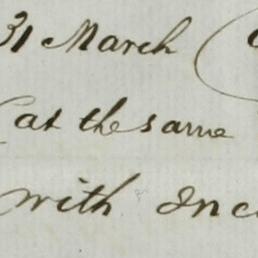 31 March (
(at the same
with Inc